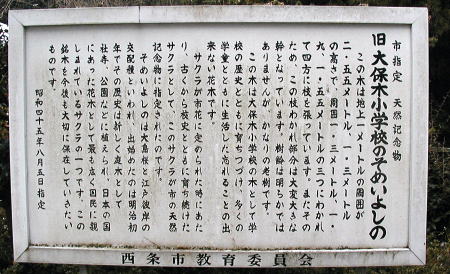 市指定 天然記念物
旧大保木小学校のそめいよしの
この木は地上一メートルの周囲が
二・五五メートル、一・三メートル
の高さで、周囲一・三メートル、一・
九、一・五五メートルの三つにわかれ
て四方に枝を張っています。またその
ため、この枝わかれ部分は大変大きな
幹となっています。樹齢は明らかでは
ありませんが、かなりの老樹です。
この木は大保木小学校の木として学
校の歴史とともに育ちつづけ、多くの
学童とともに生活した忘れることの出
来ない花木です。
サクラが市花に定められた時にあた
り、古くから校史とともに育ち続けた
サクラとして、このサクラが市の天然
記念物に指定されたのです。
そめいよしのは大島桜と江戸彼岸の
交配種といわれ、出始めたのは明治初
年でその歴史は新しく庭木として
社寺、公園などに植えられ、日本の国
にあった花木として最も広く国民に親
しまれているサクラの一つです。この
銘木を今後も大切に保存していきたい
ものです。
昭和四十五年八月五日指定
西条市教育委員会